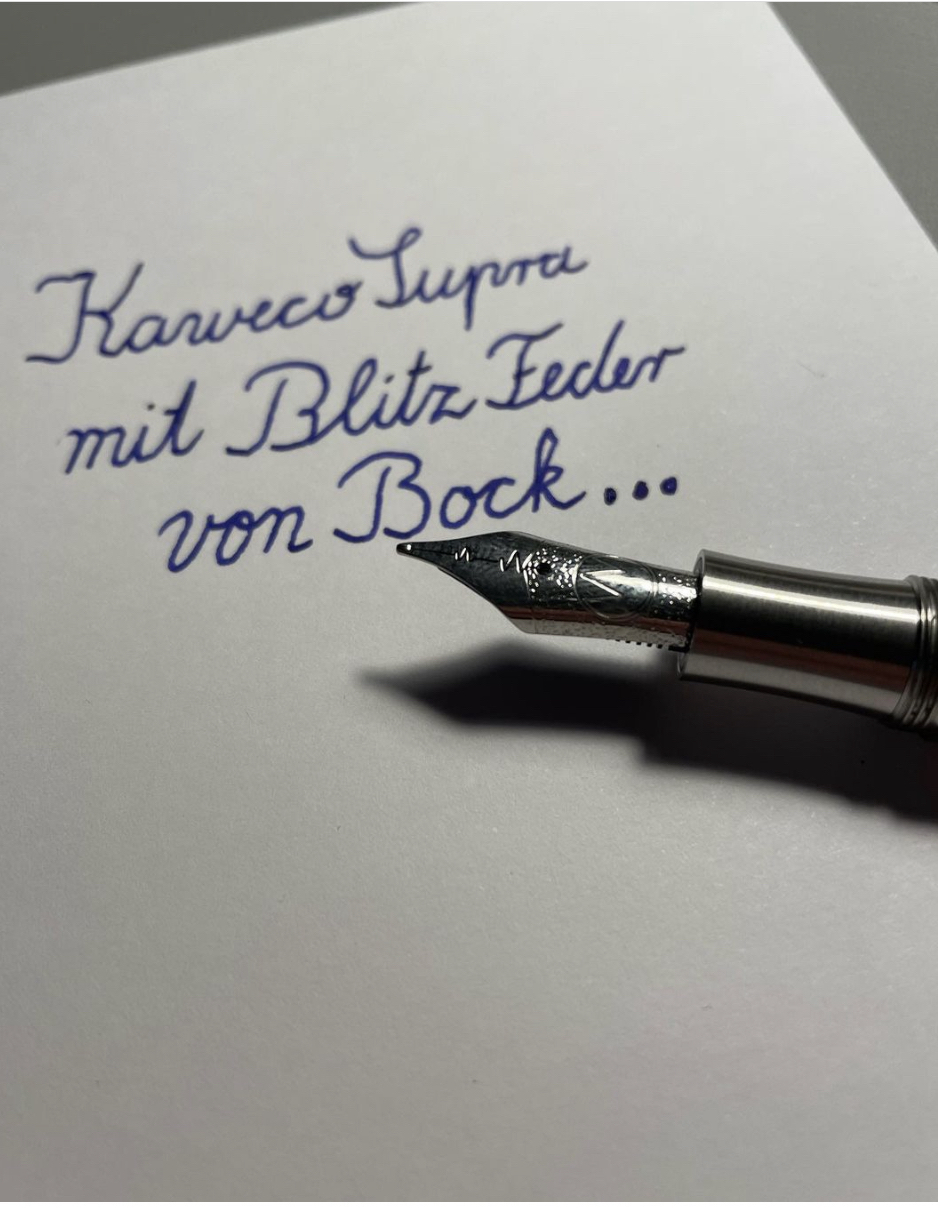 Kaweco Supra
mit Blitz Feder
von Bock...